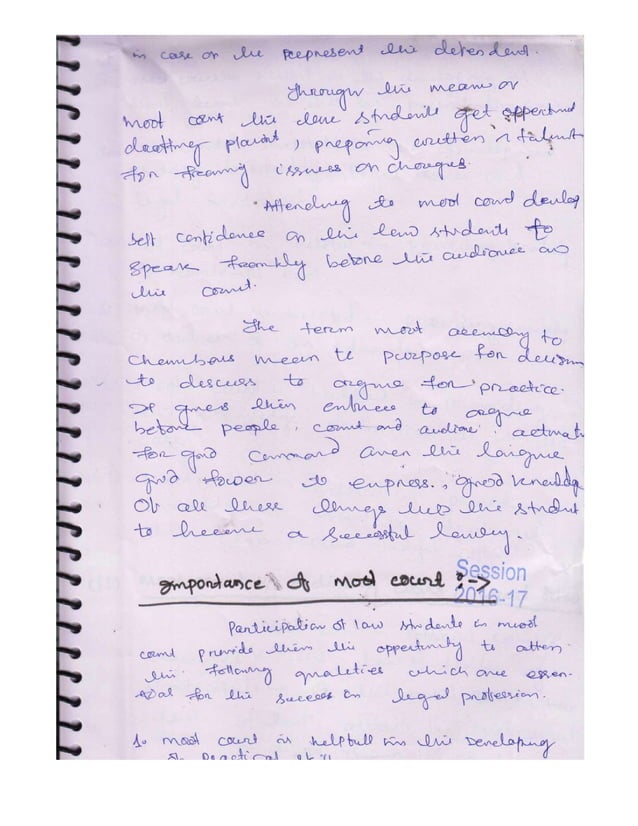 in case or the represent the defendent.
Through the means of
moot court the law students get opportuni
drafting plaint, preparing written
for framing issues or charges.
Attending to moot court develop
self confidence on the law students to
speak frankly before the audience and
the court.
The term moot according to
Chembers mean to purpose for decision
to discuss to argue for practice.
It gives them to argue
before people, court and audience.
for good command over the language
good power to express, good knowledge
Of all these things help the student
to become a successful lawyer.
Importance Of moot court :->
Session
2016-17
Participation of law students in moot
court provide them the opportunity to atten
the following qualeties which are essen-
tial for the success in legal profession.
1. moot court is helpfull in the Developing
Practical skill